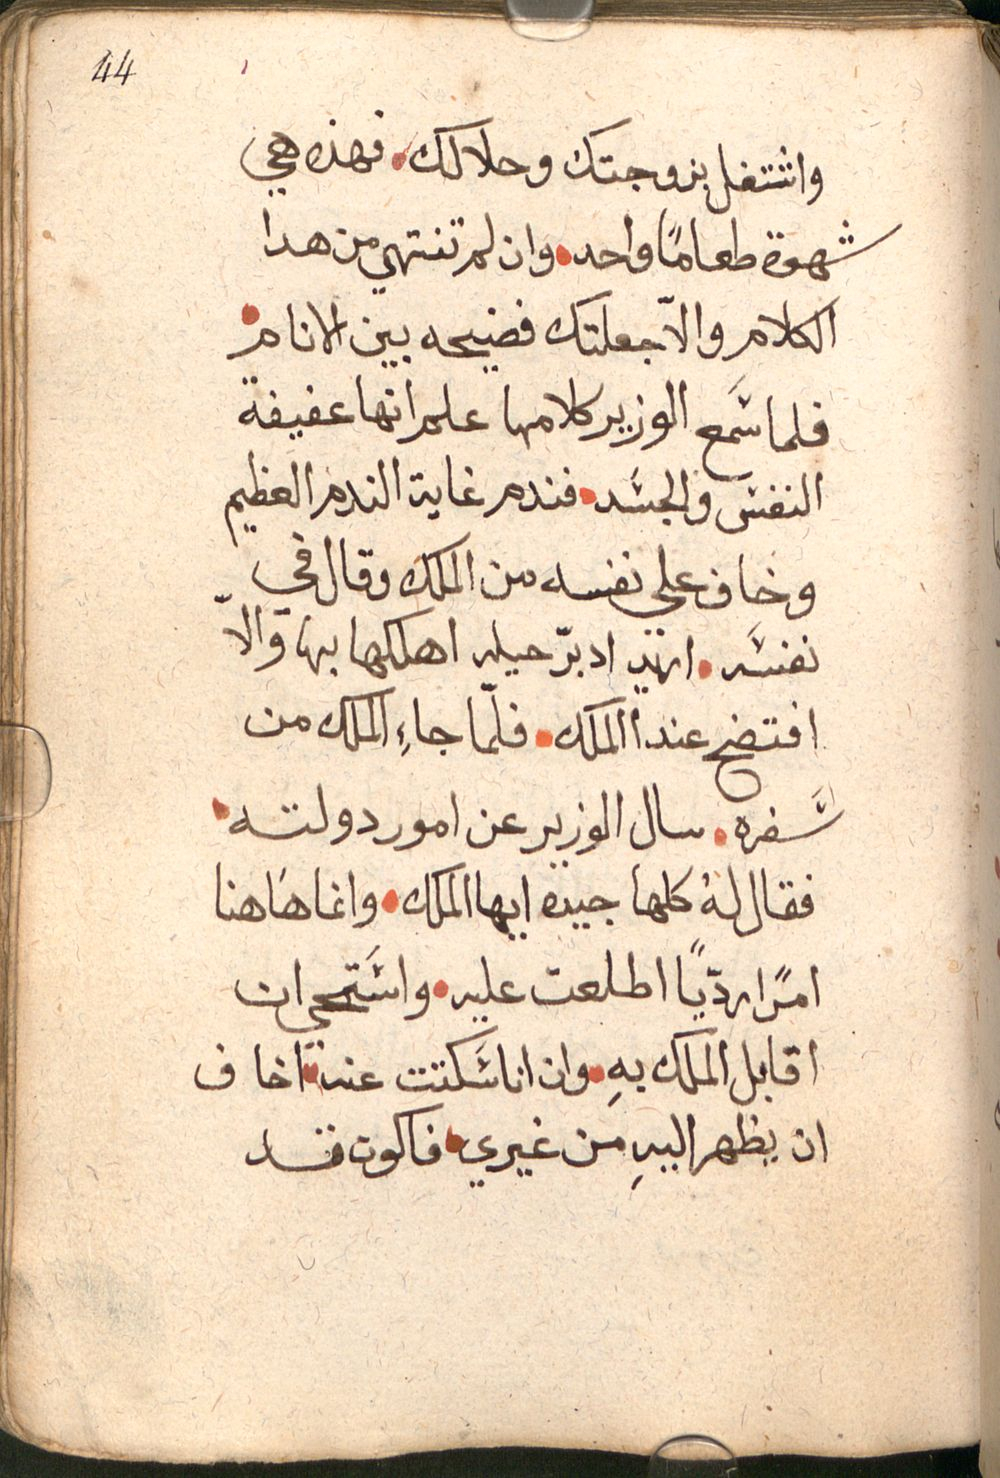 44
واشتغل بزوجتك وحلالك. فهذه هي
شهوة طعامًا واحد. وان لم تنتهي من هدا
الكلام والاّ جعلتك فضيحه بين الانام.
فلما سَمع الوزير كلامها علم انها عفيفة
النفس والجسَد. فندم غاية الندم العظيم
وخاف على نفسه من الملك وقال في
نفسَه. اريد ادبرّ حيله اهلكها بها والاّ
افتضح عند الملك. فلمّا جاءِ الملك من
سَفره. سال الوزير عن امور دولته.
فقال لهُ كلها جيده ايها الملك. وانما هاهنا
امرًا رديًا اطلعت عليه. واسَتحي ان
اقابل الملك بهِ. وان انا سَكتت عنه. اخاف
ان يظهر اليهِ من غيري. فاكون قد